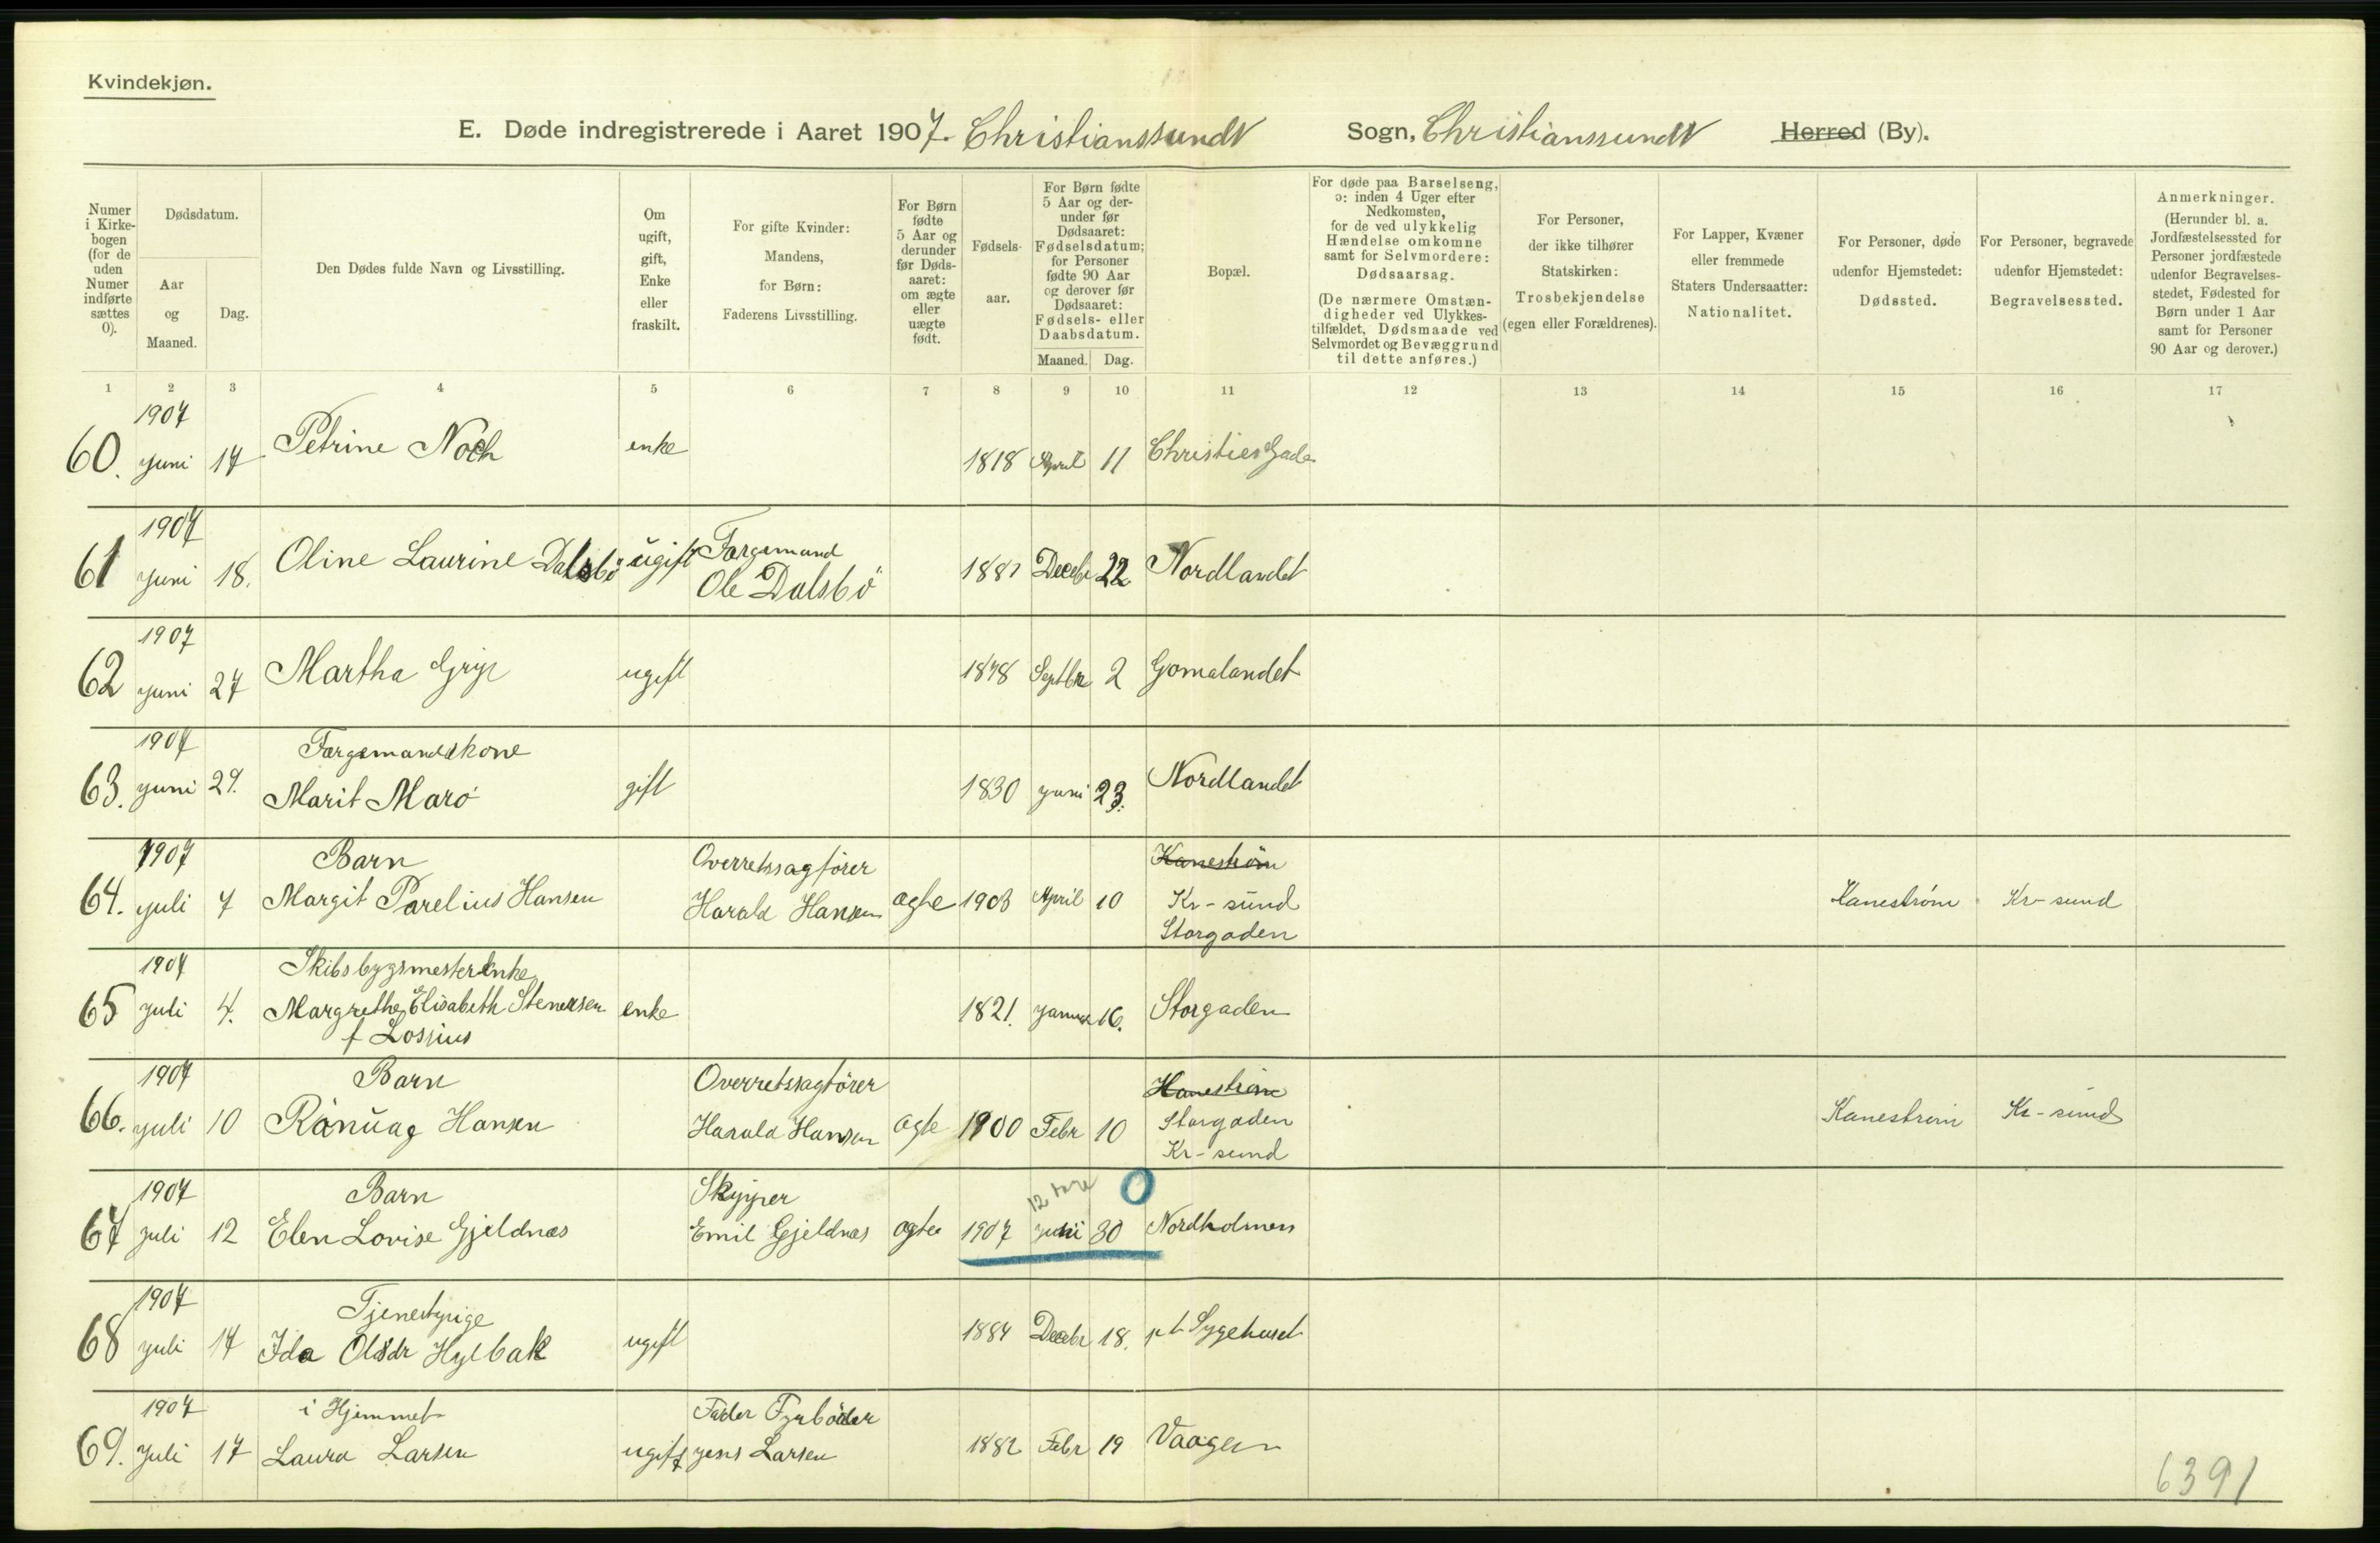 Kvindekjøn.
E. Døde indregistrerede i Aaret 1907. Christianssund Sogn, Christianssund Herred (By).
Numer i Kirkebogen (for de uden Numer indførte sættes 0).
Dødsdatum.
Aar og Maaned.
Dag.
Den Dødes fulde Navn og Livsstilling.
Om ugift, gift, Enke eller fraskilt.
For gifte Kvinder: Mandens, for Børn: Faderens Livsstilling.
For Børn fødte 5 Aar og derunder før Dødsaaret: om ægte eller uægte født.
Fødselsaar.
For Børn fødte 5 Aar og derunder før Dødsaaret: Fødselsdatum; for Personer fødte 90 Aar og derover før Dødsaaret: Fødsels- eller Daabsdatum.
Maaned. Dag.
Bopæl.
For døde paa Barselseng, ɔ: inden 4 Uger efter Nedkomsten, for de ved ulykkelig Hændelse omkomne samt for Selvmordere: Dødsaarsag.
(De nærmere Omstændigheder ved Ulykkestilfældet, Dødsmaade ved Selvmordet og Bevæggrund til dette anføres.)
For Personer, der ikke tilhører Statskirken: Trosbekjendelse (egen eller Forældrenes).
For Lapper, Kvæner eller fremmede Staters Undersaatter: Nationalitet.
For Personer, døde udenfor Hjemstedet: Dødssted.
For Personer, begravede udenfor Hjemstedet: Begravelsessted.
Anmerkninger.
(Herunder bl. a. Jordfæstelsessted for Personer jordfæstede udenfor Begravelsesstedet, Fødested for Børn under 1 Aar samt for Personer 90 Aar og derover.)
1 2 3 4 5 6 7 8 9 10 11 12 13 14 15 16 17
1907
60. juni 17 Petrine Noch enke 1818 April 11 Christies Gade
1907
Færgemand
61 juni 18. Oline Laurine Dalsbö ugift Ole Dalsbö 1881 Decbr 22 Nordlandet
1907
62 juni 27 Martha ugift 1878 Septbr 2 Gomalandet
1907 Færgemandskone
63. juni 29. Marit Marö gift 1830 juni 23. Nordlandet
1907 Barn Overretssagfører Kanestrøm
64. juli 7 Margit Parelius Hansen Harald Hansen ægte 1903 April 10 Kr-sund Kanestrøm Kr-sund
Storgaden
1907 Skibsbygmesterenke
65 juli 4. Margrethe Elisabeth Stenersen enke 1821. januar 16. Storgaden
f Lossius
1907 Barn Overretssagfører Kanestrøm
66. juli 10 Ránúag Hansen Harald Hansen ægte 1900 Febr 10 Storgaden Kanestrøm Kr-sund
Kr-sund
1907 Barn Skipper 12 0
67 juli 12 Elen Lovise Gjeldnæs Emil Gjeldnæs ægte 1907 juni 30 Nordholmen
1907 Tjenestpige
68 juli 14 Ida Olsdr Hylbak ugift 1884 Decbr 18. pt Sygehuset
1907 i Hjemmet Fader Fyrbøder
69. juli 17 Laura Larsen ugift jens Larsen 1882 Febr 19 Vaagen
6391